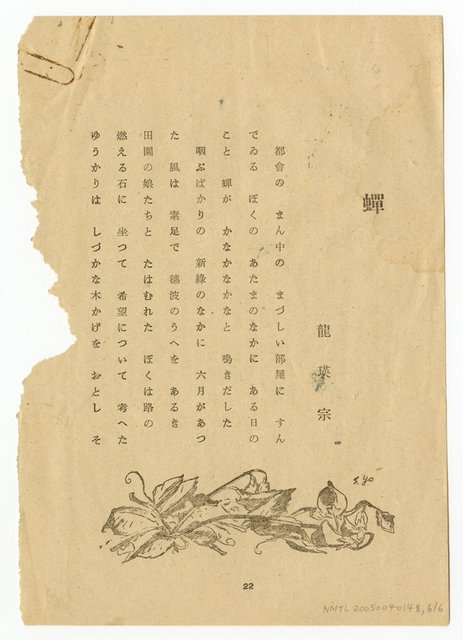 蟬
龍瑛宗
都會の まん中の まづしい部屋に すん
でゐる ぼくの あたまのなかに ある日の
こと 蟬が かなかなかなと 鳴きだした
咽ぶばかりの 新綠のなかに 六月があつ
た 風は 素足で 穗波のうへを あるき
田園の娘たちと たはむれた ぼくは路の
燃える石に 坐つて 希望について 考へた
ゆうかりは しづかな木かげを おとし そ
S. yo
22
NMTL 20050040148, 6/6